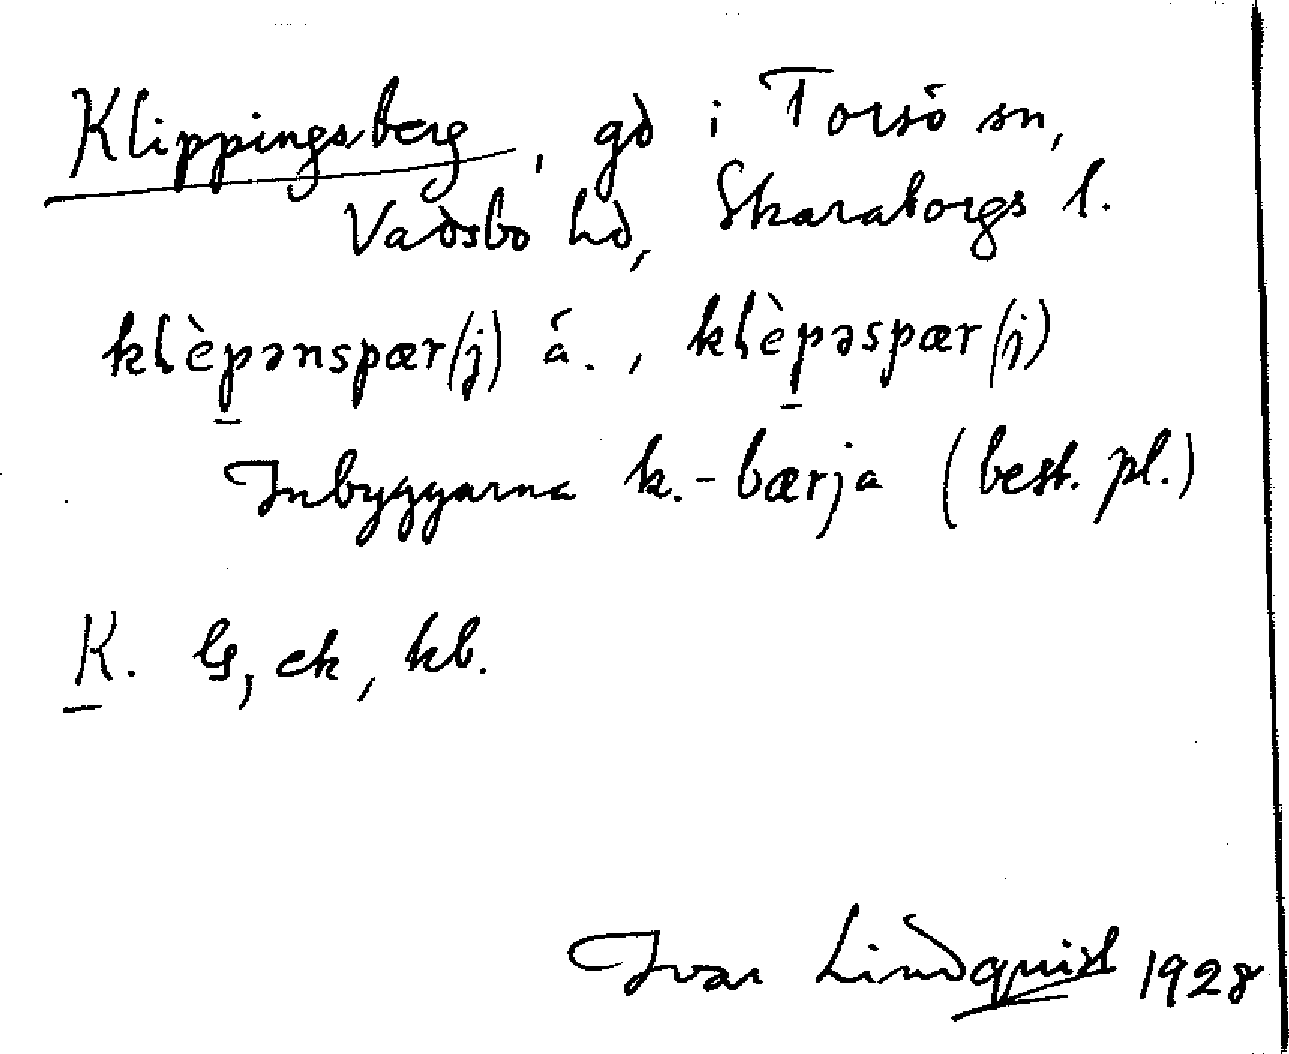 Klippingsberg, gd i Torsö sn,
Vadsbo hd, Skaraborgs l.
klèpənspær(j) ä., klèpəspær(j)
Inbyggarna k.-bærja (best. pl.)
K. G, ek, kb.
Ivar Lindquist 1928